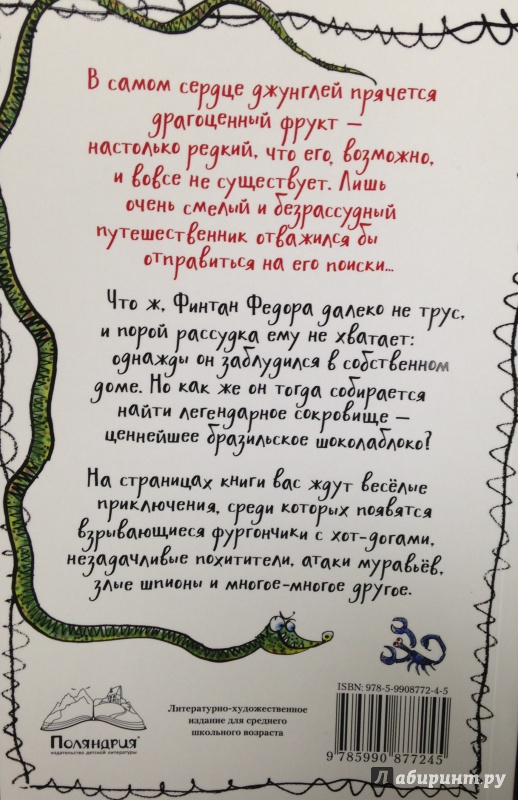 В самом сердце джунглей прячется
драгоценный фрукт —
настолько редкий, что его, возможно,
и вовсе не существует. Лишь
очень смелый и безрассудный
путешественник отважился бы
отправиться на его поиски...
Что ж, Финтан Федора далеко не трус,
и порой рассудка ему не хватает:
однажды он заблудился в собственном
доме. Но как же он тогда собирается
найти легендарное сокровище —
ценнейшее бразильское шоколаблоко?
На страницах книги вас ждут весёлые
приключения, среди которых появятся
взрывающиеся фургончики с хот-догами,
незадачливые похитители, атаки муравьёв,
злые шпионы и многое-многое другое.
ISBN: 978-5-9908772-4-5
Литературно-художественное
издание для среднего
школьного возраста
Поляндрия
издательство детской литературы
9 785990 877245
Лабиринт.ру